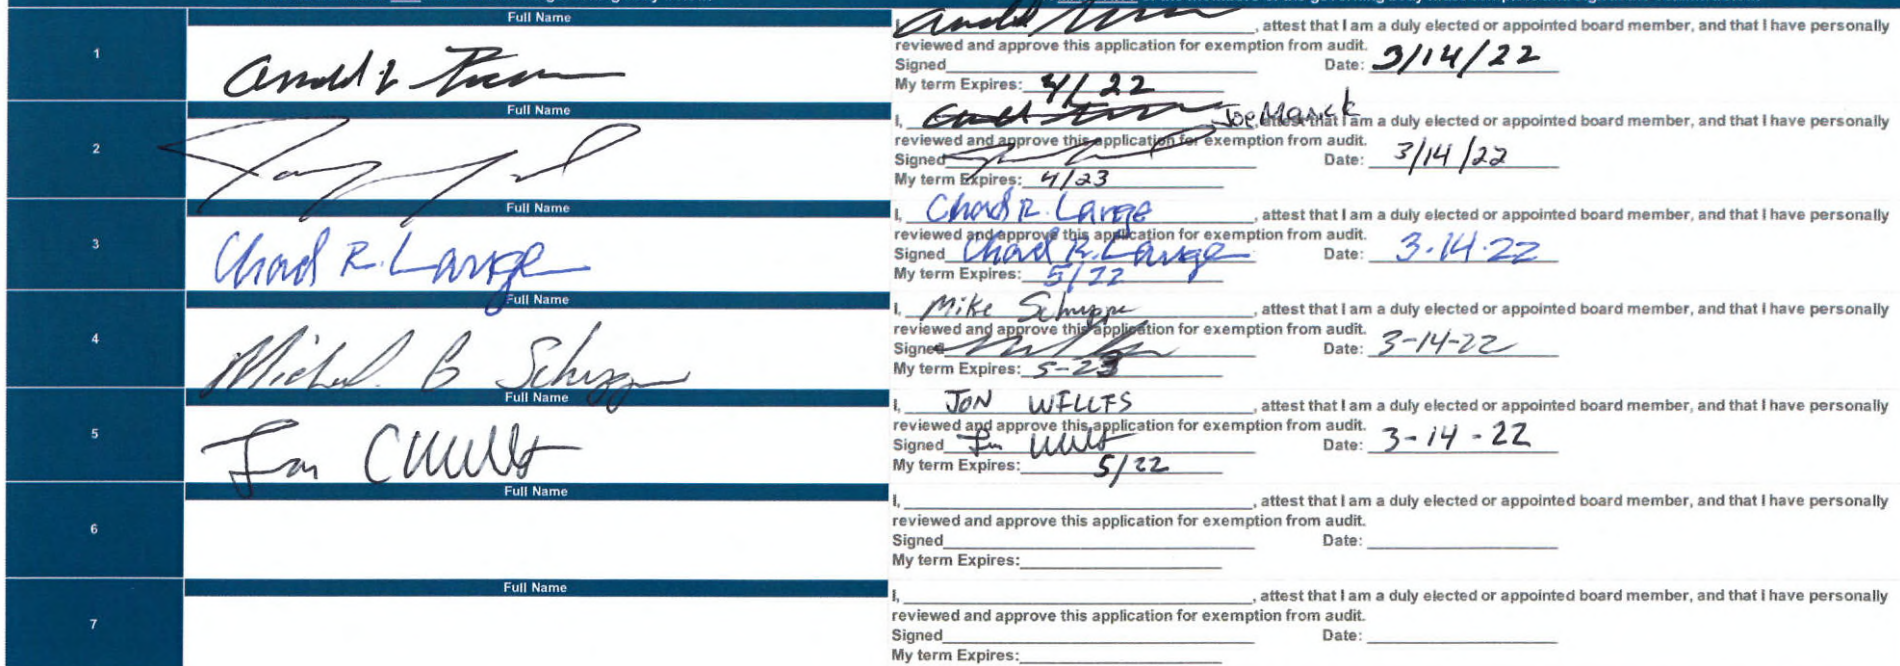 Full Name
1
Arnold L
I, Arnold, attest that I am a duly elected or appointed board member, and that I have personally
reviewed and approve this application for exemption from audit.
Signed Date: 3/14/22
My term Expires: 4/22
Full Name
2
I, Joe Marick, attest that I am a duly elected or appointed board member, and that I have personally
reviewed and approve this application for exemption from audit.
Signed Date: 3/14/22
My term Expires: 4/23
Full Name
3
Chad R. Lange
I, Chad R. Lange, attest that I am a duly elected or appointed board member, and that I have personally
reviewed and approve this application for exemption from audit.
Signed Chad R. Lange Date: 3-14-22
My term Expires: 5/22
Full Name
4
Michael B Schuppe
I, Mike Schuppe, attest that I am a duly elected or appointed board member, and that I have personally
reviewed and approve this application for exemption from audit.
Signed Date: 3-14-22
My term Expires: 5-23
Full Name
5
Jon C Willts
I, JON WILLTS, attest that I am a duly elected or appointed board member, and that I have personally
reviewed and approve this application for exemption from audit.
Signed Jon Date: 3-14-22
My term Expires: 5/22
Full Name
6
I, , attest that I am a duly elected or appointed board member, and that I have personally
reviewed and approve this application for exemption from audit.
Signed Date:
My term Expires:
Full Name
7
I, , attest that I am a duly elected or appointed board member, and that I have personally
reviewed and approve this application for exemption from audit.
Signed Date:
My term Expires: